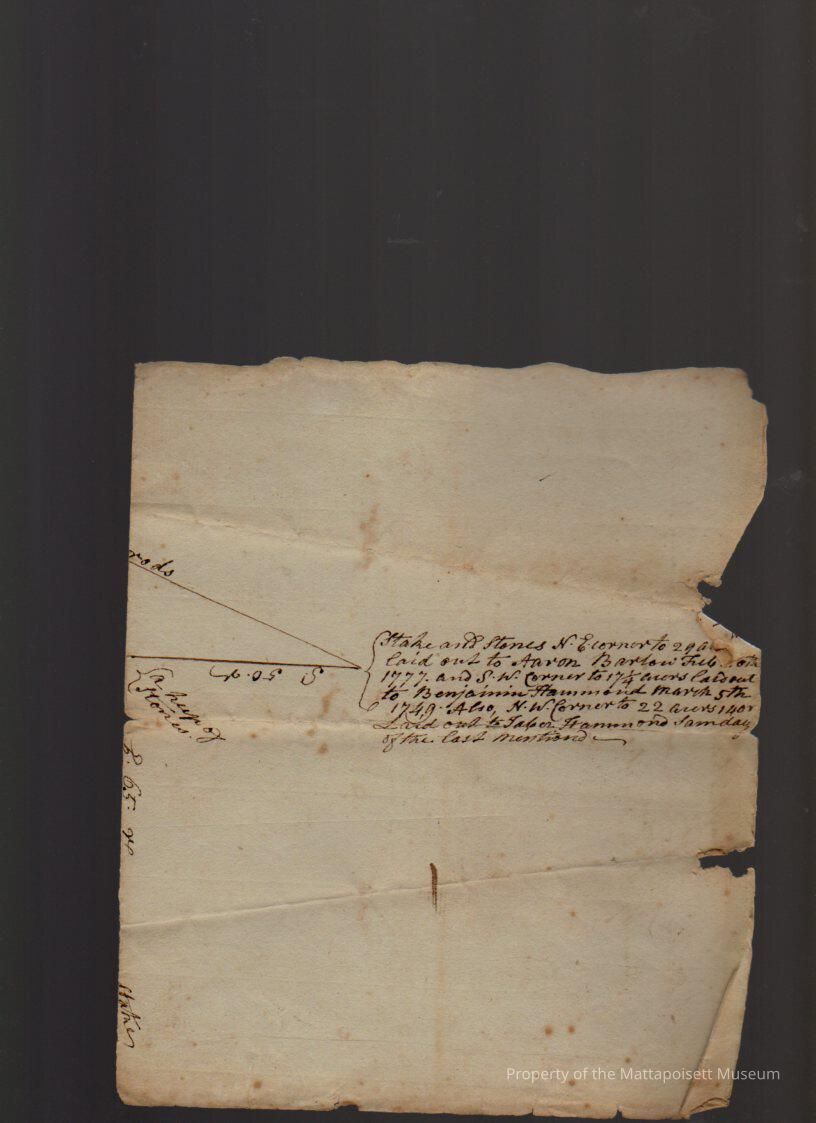 rods
Stake and Stones N. E corner to 29
laid out to Aaron Barlow Feb.
1777. and S. W. Corner to 17½ acers laid out
to Benjamin Hammond March 5th
1749. Also, N. W Corner to 22 acers 140r
Laid out to Tabor Hammond Samday
of the last mentiond
S 50. r
a heep of
Stones.
65. r
Stake
Property of the Mattapoisett Museum